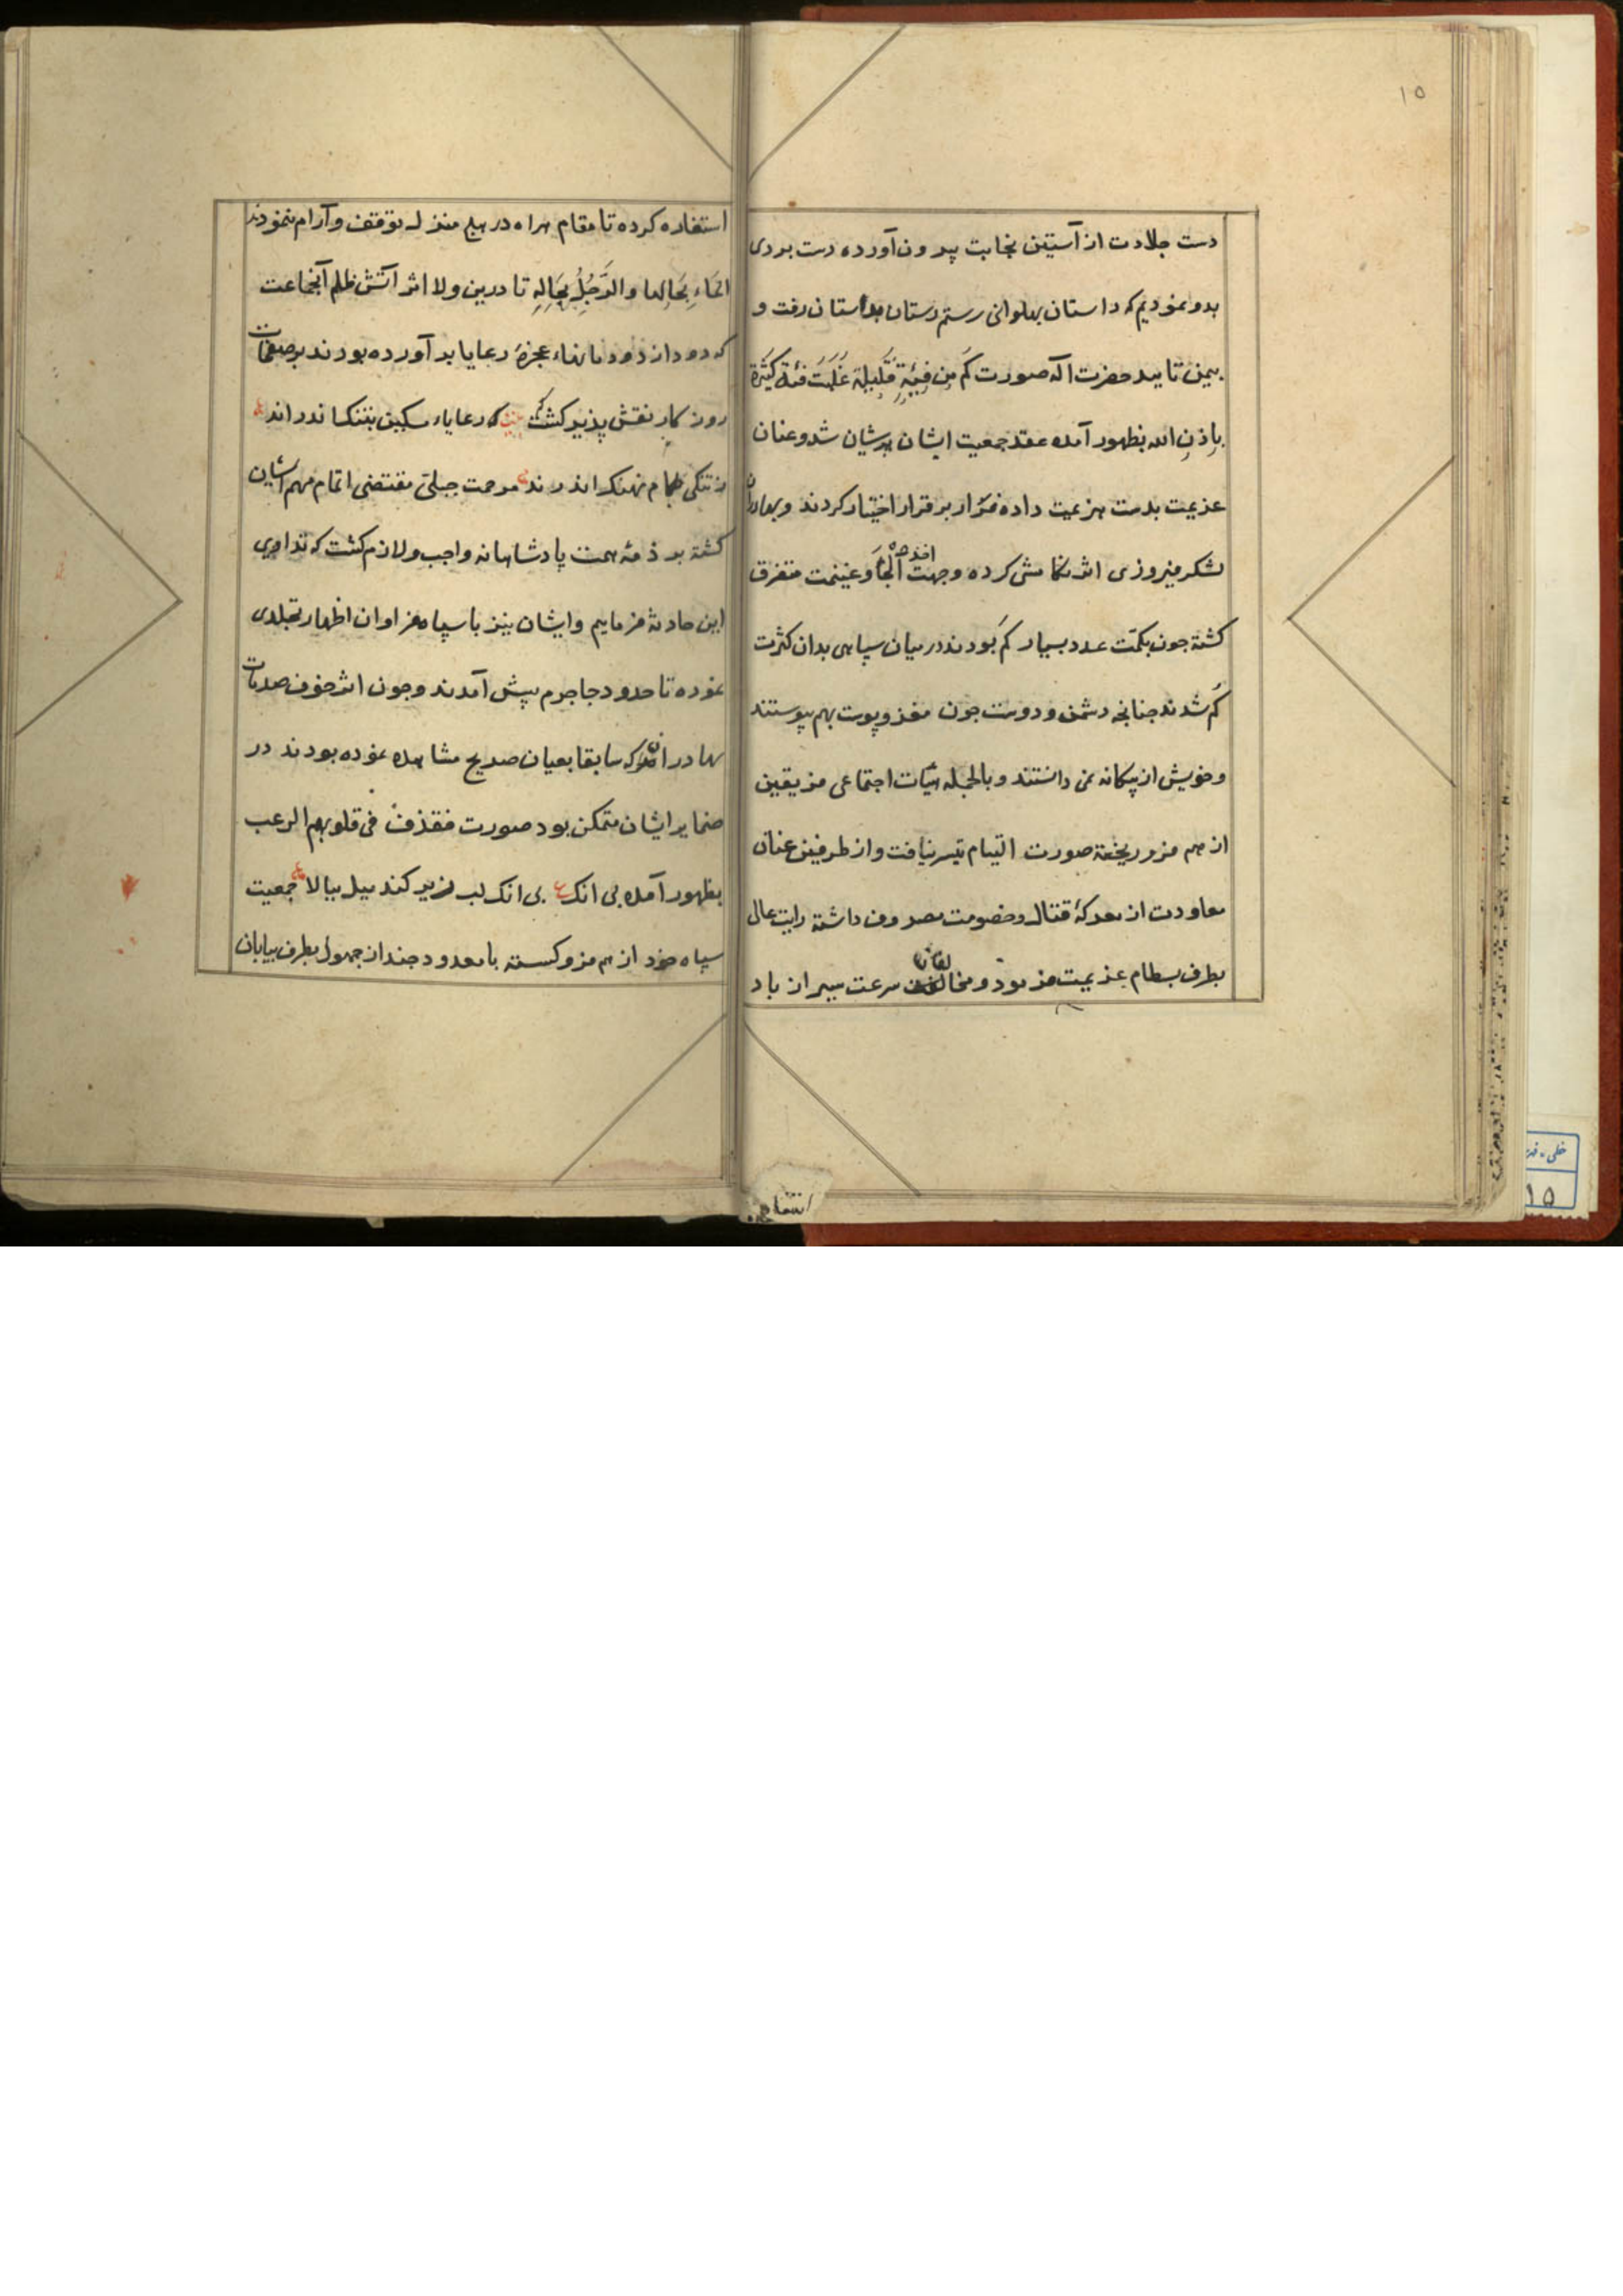 ۱۵
دست جلادت از آستین نجابت بیرون آورده دست بردی
بدو نمودیم که داستان پهلوانی رستم دستان بداستان رفت و
بیمن تایید حضرت اله صورت کَم مِن فِئَةٍ قَلِیلَة غَلَبَت فئة کثیرَة
بِاِذنِ الله بظهور آمده عقد جمعیت ایشان پریشان شد و عنان
عزیمت بدست هزیمت داده فرار بر قرار اختیار کردند و بهادران
لشکر فیروزی اثر تکامشی کرده وجهت اخذ اُلجاَ و غنیمت متفرق
کشته جون بکمّت عدد بسیار کم بودند در میان سپاهی بدان کثرت
کُم شدند جنانجه دشمن و دوست جون مغز و پوست بهم پیوستند
و خویش از بیکانه نمی دانستند و بالجمله هیئات اجتماعی فریقین
از هم فرو ریخته صورت التیام تیسر نیافت و از طرفین عنان
معاودت از معرکۀ قتال و خصومت مصروف داشته رایت عالی
بطرف بسطام عزیمت فرمود و مخالفان سرعت سیر از باد
استفاده کرده تا مقام هراه در هیج منزل توقف و آرام ننمودند
اَلمَاء بِحَالِها والرَّجُلُ بِحَالِهِ تا درین ولا اثر آتش ظلم آنجماعت
که دود از دودمانهاء عجزۀ رعایا بر آورده بودند بر صفحات
روزکار نقش پذیر کشت که رعایاء مسکین بتنکنا ندراند
مرحمت جبلّی مقتضی اتمام مهم ایشان
کشته بر ذمّۀ همت پادشاهانه واجب و لازم کشت که تداوی
این حادثه فرماییم و ایشان نیز با سپاه فراوان اظهار تجلدی
نموده تا حدود جاجرم پیش آمدند و جون اثر خوف صدمات
بهادران که سابقا بعیان صریح مشاهده نموده بودند در
ضمایر ایشان متمکن بود صورت فقذف فی قلوبهم الرعب
بظهور آمده بی انک بی انک لب زیر کند میل ببالا جمعیت
سپاه خود از هم فرو کسسته با معدودی جند از جهول بطرف بیابان
انتما
۱۵